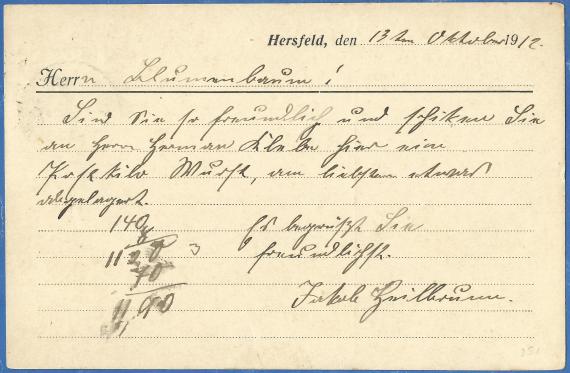 Hersfeld, den 13ten Oktober 1912.
Herrn Blumenbaum!
Sind Sie so freundlich und schiken Sie
an Herrn Herman Klebe hier ein
Postkilo Wurst, am liebsten etwas
abgelagert.
140
8
1120
70
1190
Es begrüßt Sie
freundlichst.
Jakob Heilbrunn.